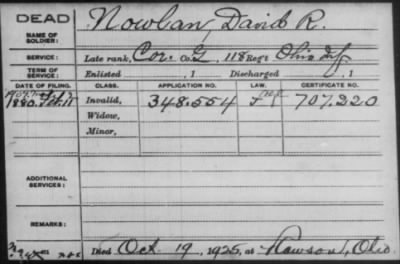 DEAD
Nowlan, David R.
NAME OF SOLDIER:
SERVICE: Late rank, Cor. Co. G, 118 Reg't Ohio Inf
TERM OF SERVICE: Enlisted , 1 Discharged , 1
DATE OF FILING. CLASS. APPLICATION NO. LAW. CERTIFICATE NO.
1880. Feb. 11 Invalid, 348.554 707.220
Widow,
Minor,
ADDITIONAL SERVICES:
REMARKS:
Died Oct 19, 1925, at Rawson, Ohio.